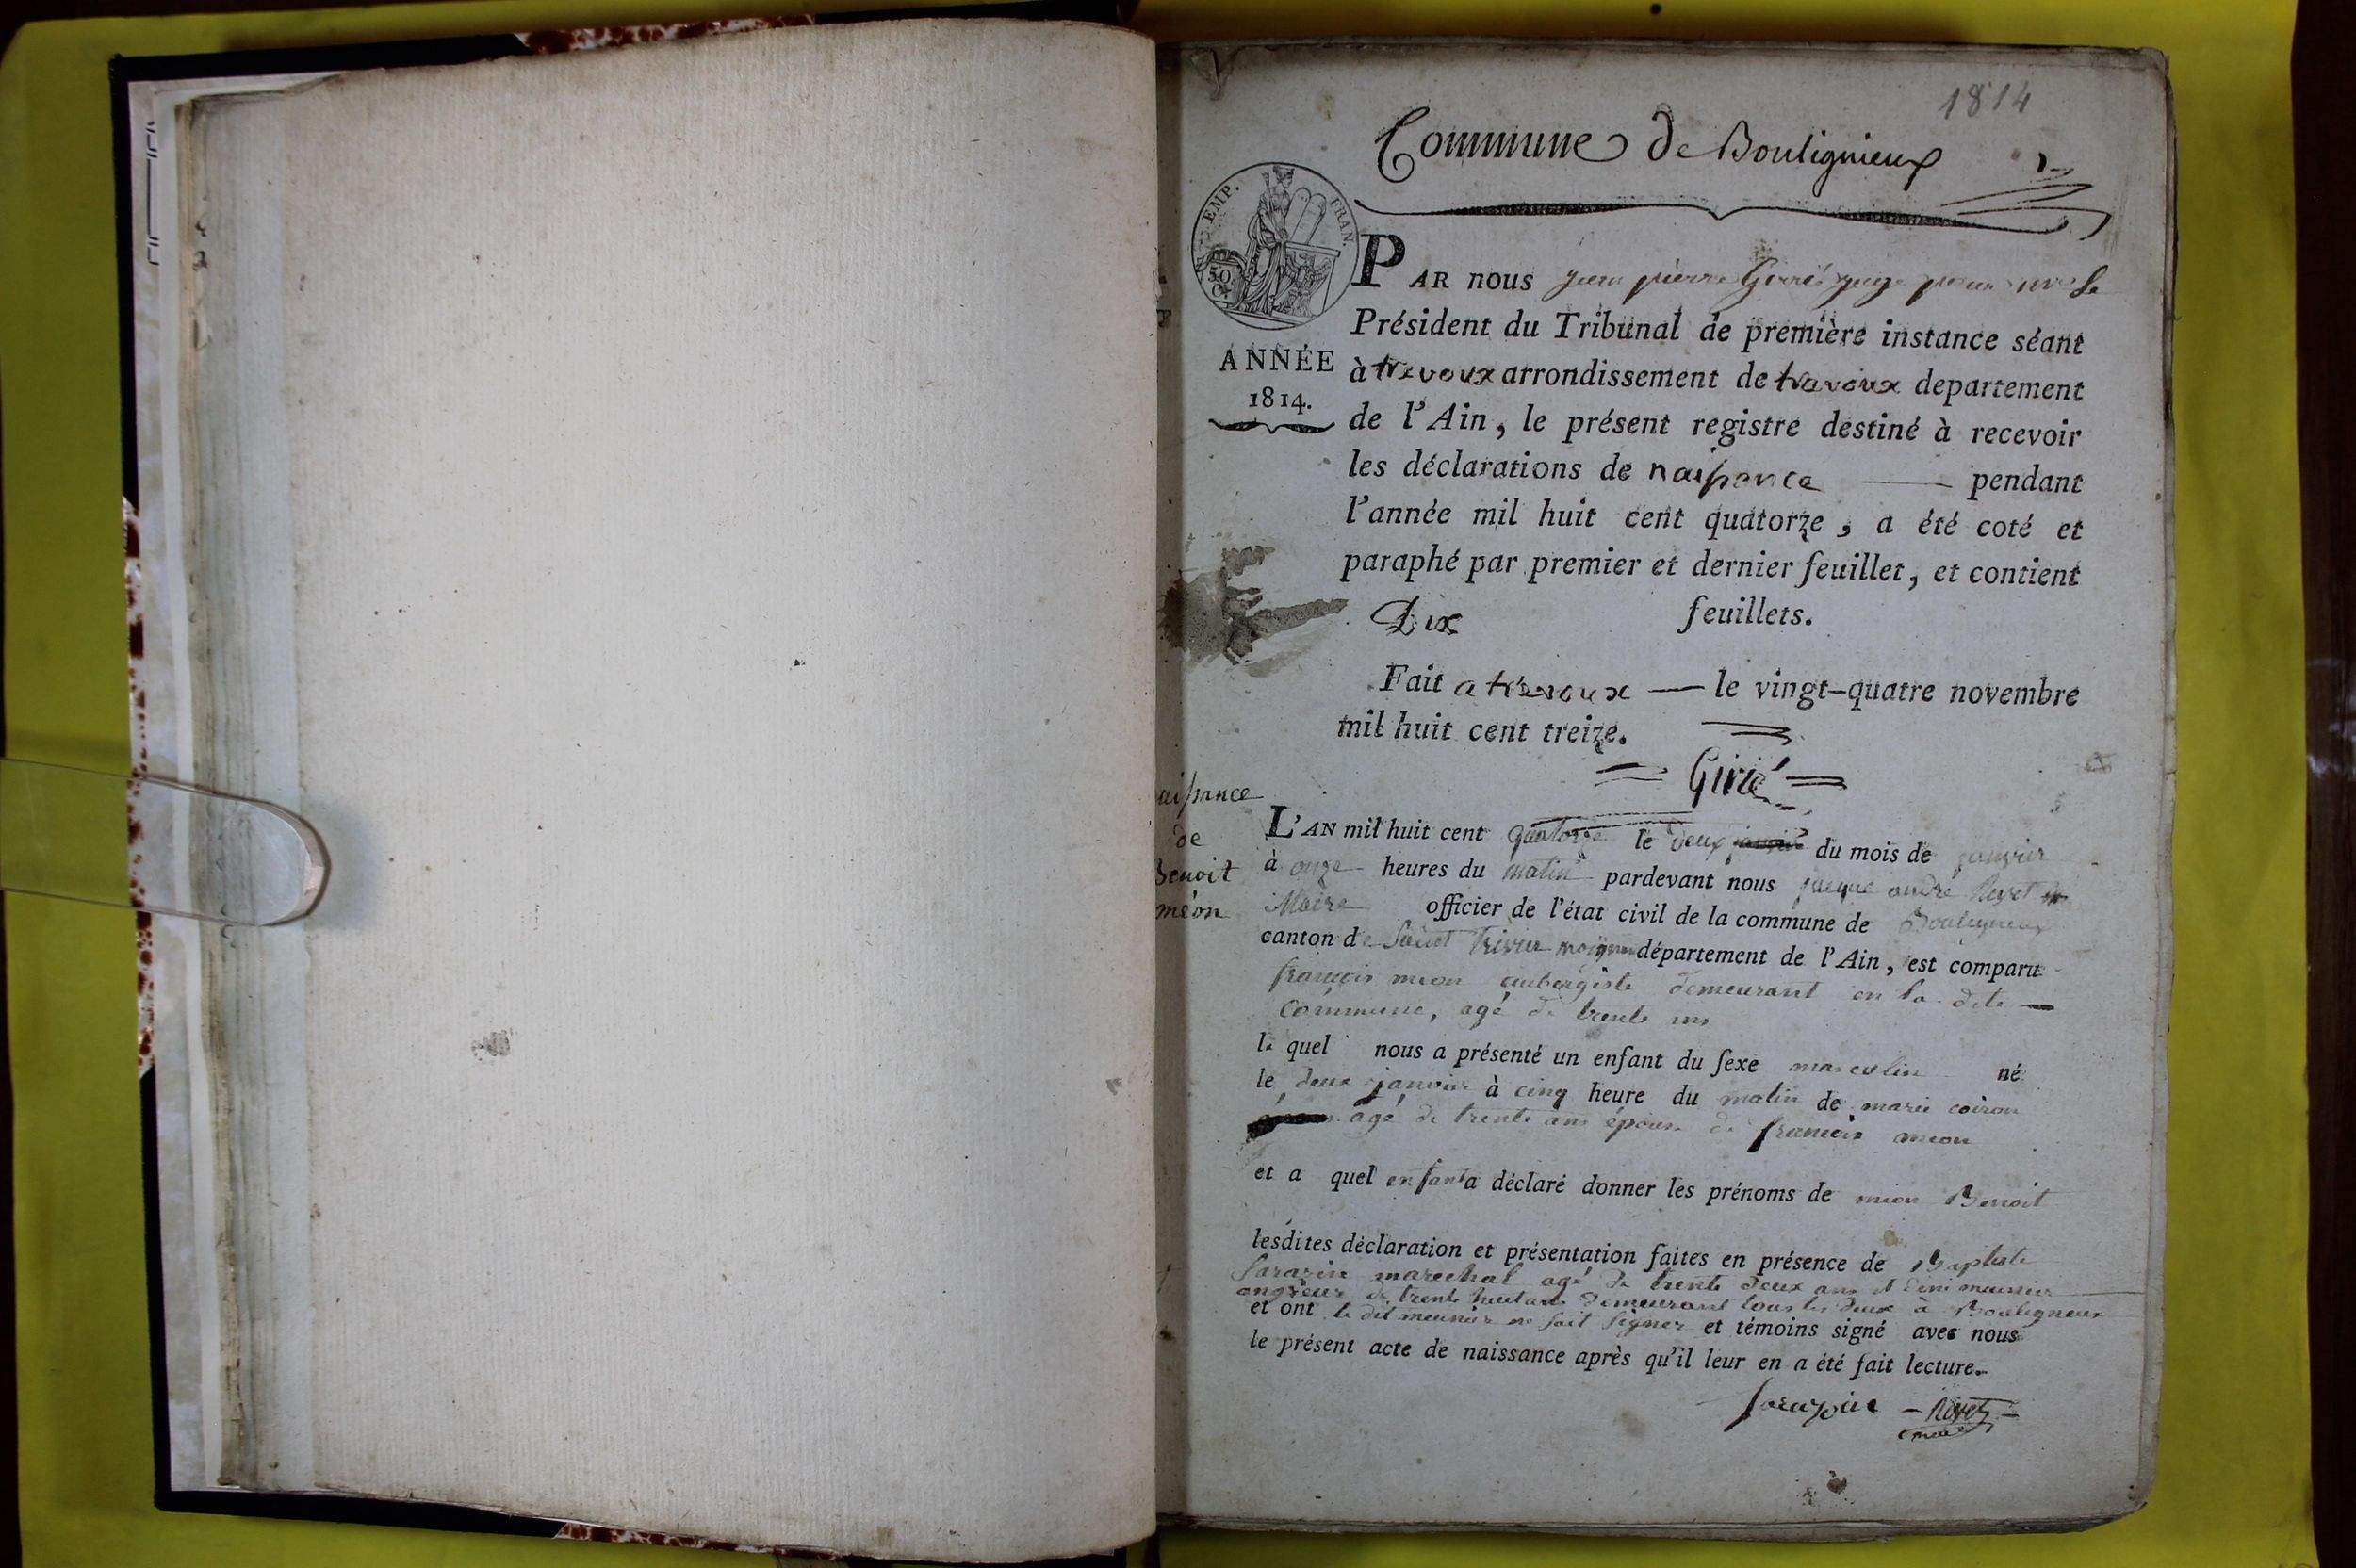 1814
Commune de Bouligneux
EMP. FRAN.
50
ANNÉE
1814.
PAR nous jean pierre Girié juge pour mr le
Président du Tribunal de première instance séant
à trevoux arrondissement de trevoux departement
de l'Ain, le présent registre destiné à recevoir
les déclarations de naissance — pendant
l'année mil huit cent quatorze, a été coté et
paraphé par premier et dernier feuillet, et contient
Dix feuillets.
Fait a trevoux — le vingt-quatre novembre
mil huit cent treize.
Girié
aissance
de
Benoit
méon
L'AN mil huit cent quatorze le deux du mois de janvier
à onze heures du matin pardevant nous jacque andré Rivet
Maire officier de l'état civil de la commune de Bouligneux
canton de Saint Trivier département de l'Ain, est comparu
françois meon aubergiste demeurant en la dite —
commune, agé de trente ans
le quel nous a présenté un enfant du sexe masculin né
le deux janvier à cinq heure du matin de marie coiron
agé de trente ans épouse de francois meon
et a quel enfant a déclaré donner les prénoms de meon Benoit
lesdites déclaration et présentation faites en présence de Baptiste
Sarazin marechal agé de trente deux ans et meunier
de trente huit ans demeurant tous les deux à Bouligneux
et ont le dit meunier ne sait signer et témoins signé avec nous
le présent acte de naissance après qu'il leur en a été fait lecture.
Sarazin — Rivet —